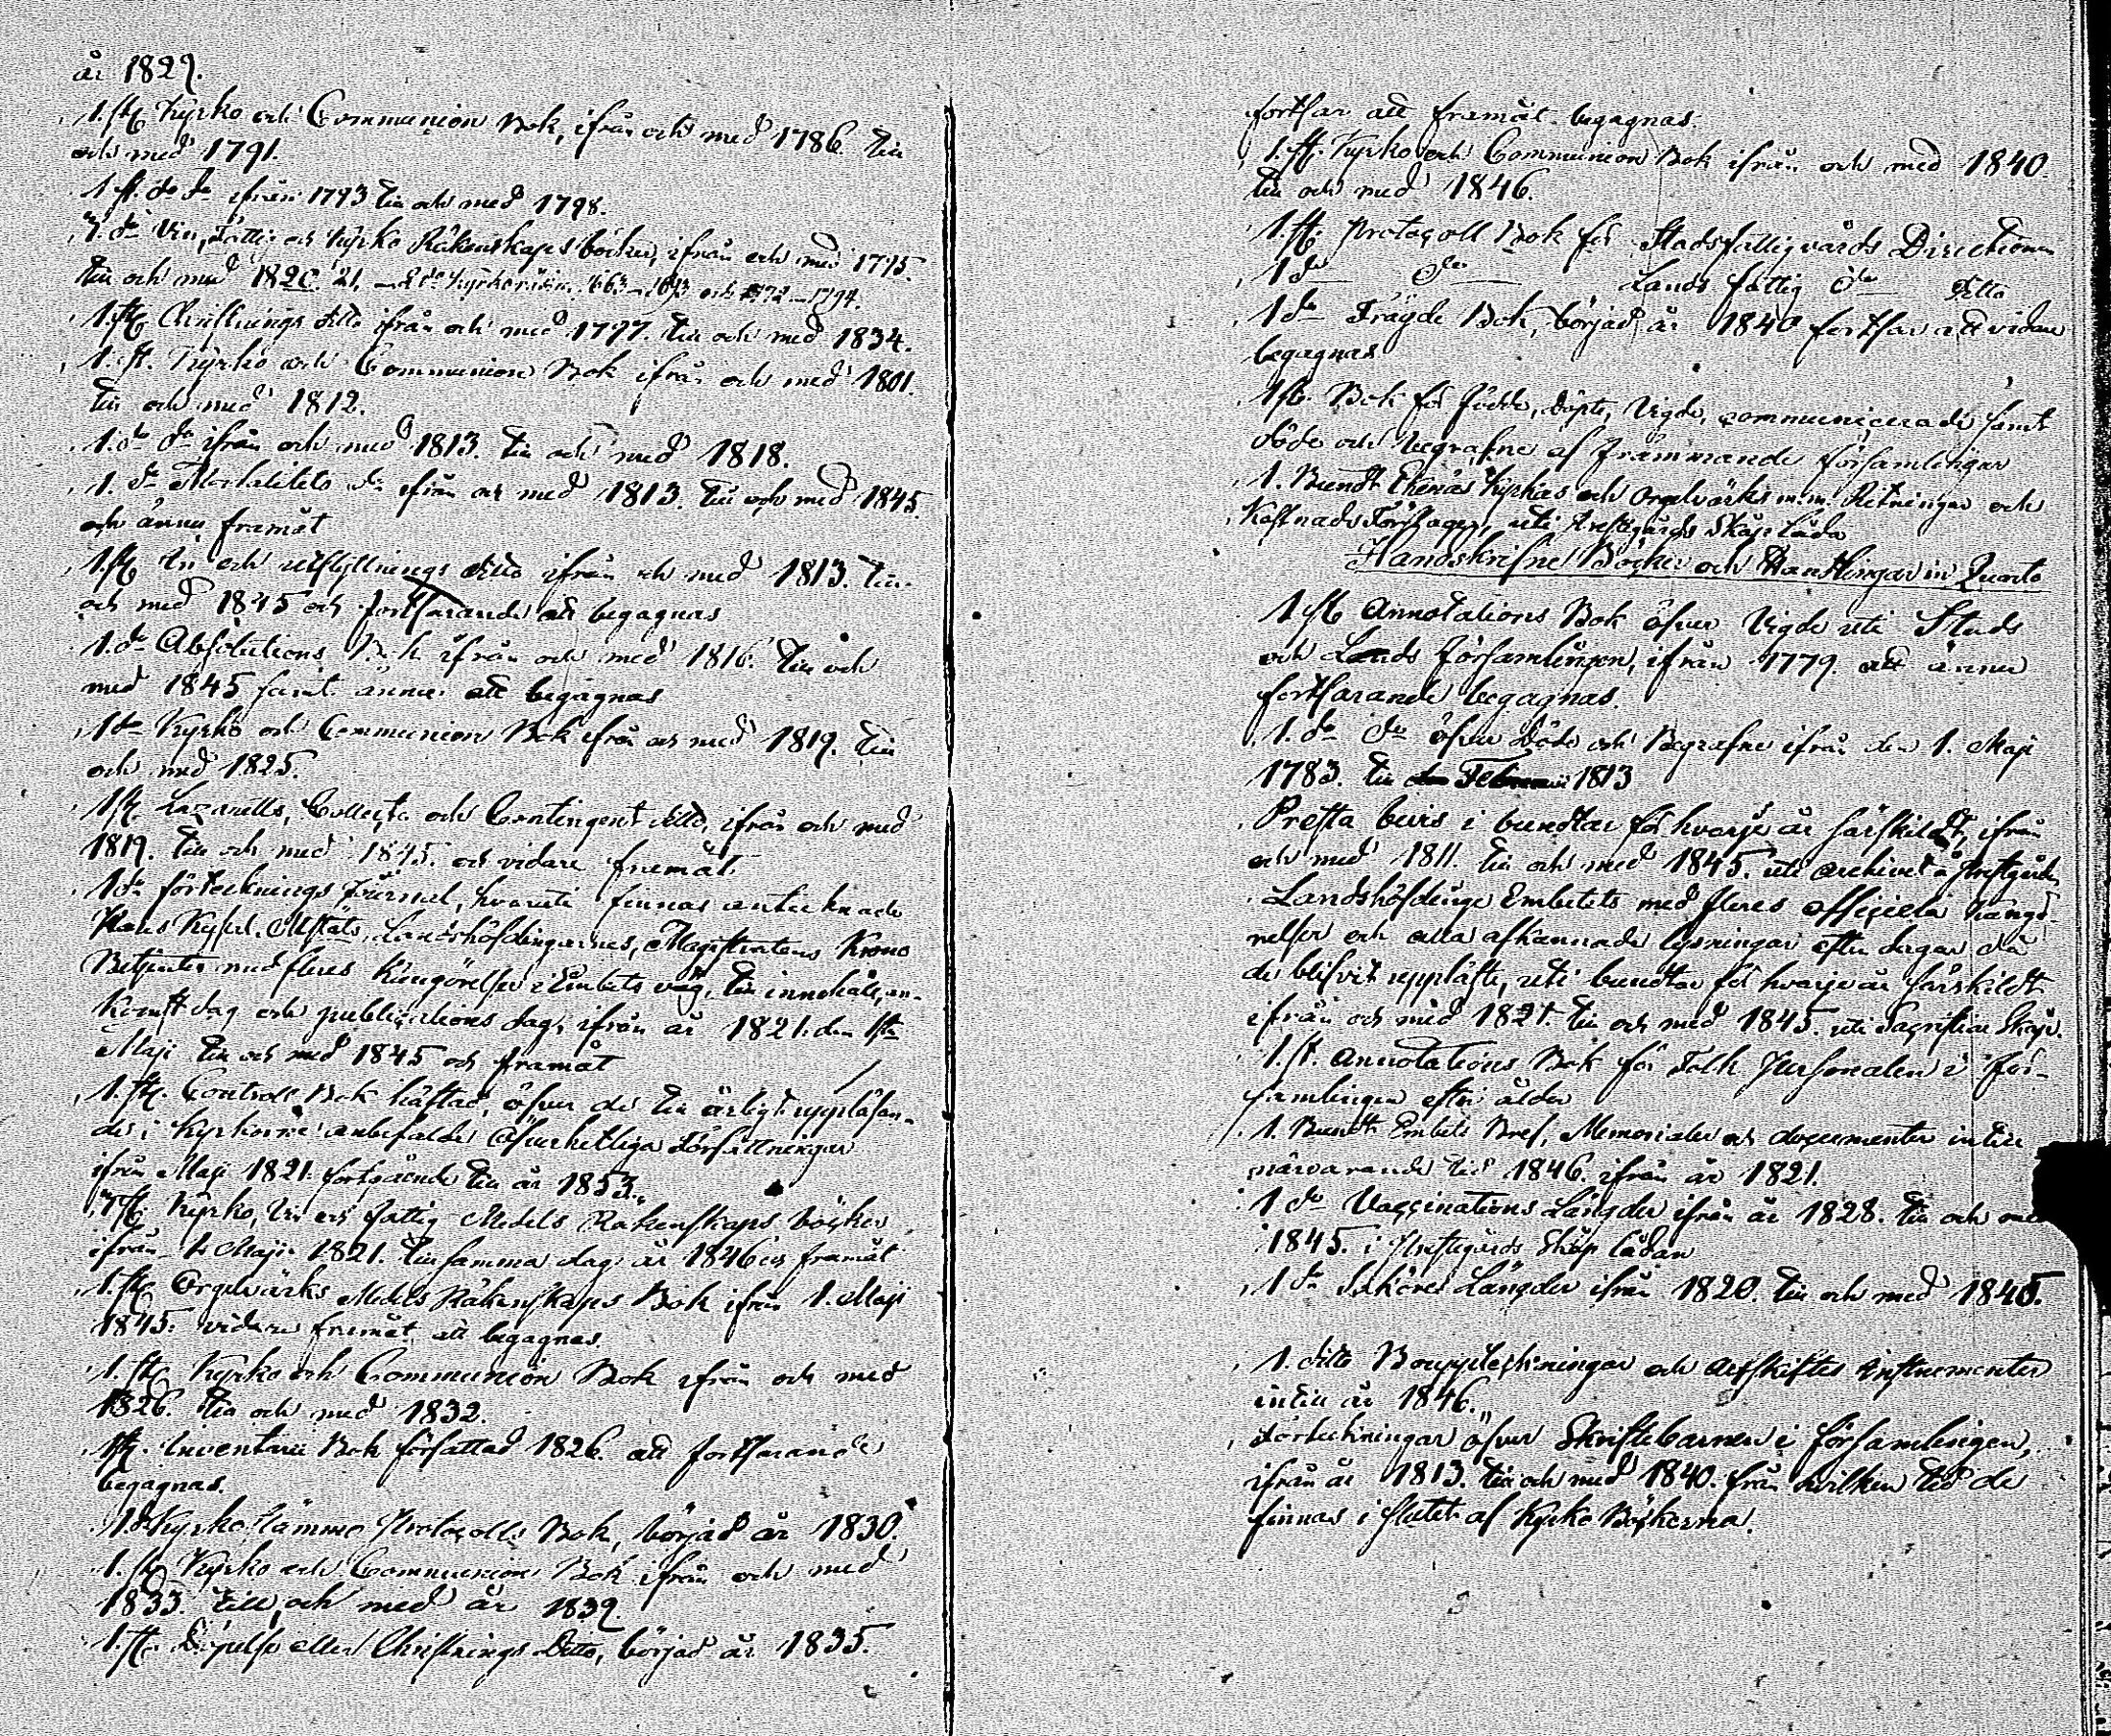 år 1829.
1. st. Kyrko och Communion Bok, ifrån och med 1786. till
och med 1791.
1 st. do do ifrån 1793 till och med 1798.
7. do Vin, Fattig och Kyrko Räkenskaps böcker, ifrån och med 1795.
till och med 1820. 21. 1663–1693 och 1772–1794.
1. st. Christnings ditto ifrån och med 1797. till och med 1834.
1. st. Kyrko och Communion Bok ifrån och med 1801.
till och med 1812.
1. do do ifrån och med 1813. till och med 1818.
1. do Mortalitets do ifrån och med 1813. till och med 1845.
och ännu framåt
1 st. In och utflyttnings ditto ifrån och med 1813. till
och med 1845 och fortfarande att begagnas
1. do Absolutions Bok ifrån och med 1816. till och
med 1845 samt ännu att begagnas
1 do Kyrko och Communion Bok ifrån och med 1819. till
och med 1825.
1 st. Lazaretts, Collect och Contingent ditto, ifrån och med
1819. till och med 1845. och vidare framåt
1 do förtecknings Journal, hvaruti finnas antecknade
Hans Kejserl. Majestäts, Landshöfdingarnes, Magistratens Krono
Betjenter med fleres kungörelser i Embets väg, till innehåll, an-
komst dag och publications dag, ifrån år 1821. den 1sta
Maji till och med 1845 och framåt
1. st. Controll Bok häftad, öfver de till årligt uppläsan-
de i Kyrkorne anbefalde Öfverhetliga Författningar
ifrån Maji 1821. fortgående till år 1853.
7 st. Kyrko, Vin och Fattig Medels Räkenskaps böcker
ifrån 1. Maji 1821. till samma dag år 1846 och framåt
1. st. Orgelvärks Medels Räkenskaps Bok ifrån 1. Maji
1845. vidare framåt att begagnas.
1. st. Kyrko och Communion Bok ifrån och med
1826. till och med 1832.
1 st. Inventarii Bok författad 1826. att fortfarande
begagnas.
1 do Kyrko Stämmo Protocolls Bok, börjad år 1830.
1. st. Kyrko och Communion Bok ifrån och med
1833. till och med år 1839.
1. st. Döpelse eller Christnings Ditto, börjad år 1835.
fortfar att framåt begagnas.
1. st. Kyrko och Communion Bok ifrån och med 1840.
till och med 1846.
1. st. Protocoll Bok för Stads fattigvårds Directionen
1 do do Lands fattig do ditto
1 do Frägde Bok, börjad år 1840 fortfar att vidare
begagnas
1 st. Bok för Födde, döpte, Vigde, communicerade samt
döde och begrafne af främmande församlingar
1. Bundt Ekenäs Kyrkas och orgelvärks m.m. Ritningar och
Kostnads Förslager, uti Prestgårds Skåp Låda
Handskrifne Böcker och Handlingar in Quarto
1 st. Annotations Bok öfver Vigde uti Stads
och Lands församlingen, ifrån 1779. att ännu
fortfarande begagnas.
1. do do öfver Döde och Begrafne ifrån den 1. Maji
1783. till 1813
Presta bevis i bundtar för hvarje år särskildt, ifrån
och med 1811. till och med 1845. uti archivet å Prestgården
Landshöfdinge Embetets med fleres officiela kungö-
relser och alla afkannade lysningar efter dagar då
de blifvit uppläste, uti bundtar för hvarje år särskildt
ifrån och med 1821. till och med 1845. uti Sacristiae Skåp.
1. st. Annotations Bok för Folk Personalen i För-
samlingen efter ålder
1. Bundt Embets Bref, Memorialer och documenter intill
närvarande tid 1846. ifrån år 1821.
1 do Vaccinations Längder ifrån år 1828. till och med
1845. i Prestgårds Skåp lådan
1 do Längder ifrån 1820. till och med 1845.
1. ditto Bouppteckningar och arfskiftes instrumenter
intill år 1846.
Förteckningar öfver Skriftebarnen i församlingen,
ifrån år 1813. till och med 1840. från hvilken tid de
finnas i slutet af Kyrko Böckerna.